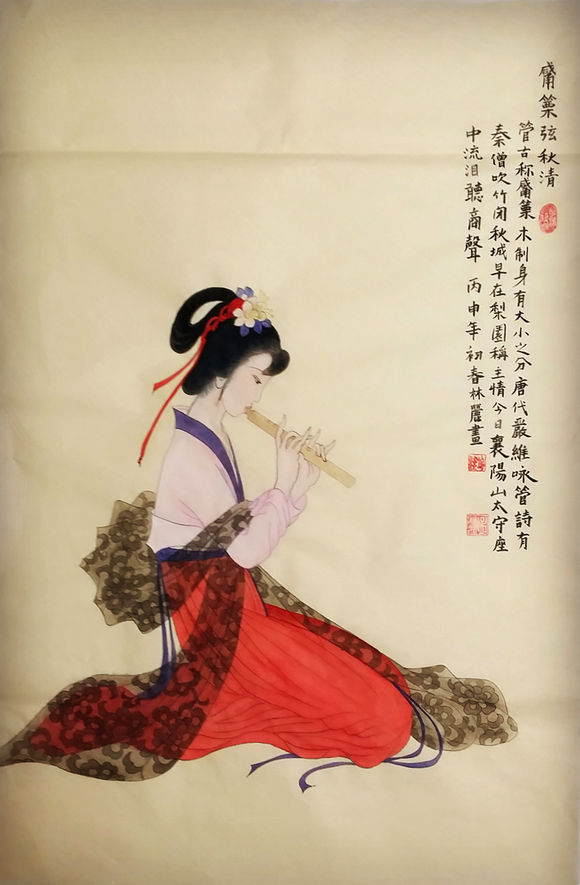 觱篥弦秋清
管古称觱篥木制身有大小之分唐代嚴維咏管詩有
秦僧吹竹闭秋城早在梨園稱主情今日襄陽山太守座
中流泪聽商聲 丙申年初春林麗畫